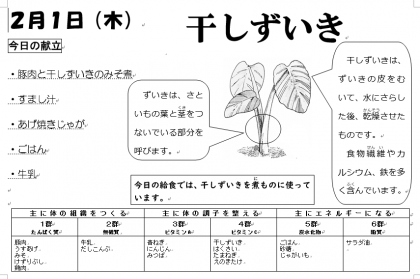 2月1日（木）
干しずいき
今日の献立
・豚肉と干しずいきのみそ煮
・すまし汁
・あげ焼きじゃが
・ごはん
・牛乳
ずいきは、さと
いもの葉と茎をつ
ないでいる部分を
呼びます。
干しずいきは、
ずいきの皮をむ
いて、水にさらし
た後、乾燥させた
ものです。
食物繊維やカ
ルシウム、鉄を多
く含んでいます。
今日の給食では、干しずいきを煮ものに使って
います。
主に体の組織をつくる 主に体の調子を整える 主にエネルギーになる
1群 2群 3群 4群 5群 6群
たんぱく質 無機質 ビタミンA ビタミンC 炭水化物 脂質
豚肉 牛乳 葉ねぎ 干しずいき ごはん サラダ油
うすあげ だしこんぶ にんじん はくさい 砂糖
みそ みつば たまねぎ じゃがいも
けずりぶし えのきたけ
鶏肉